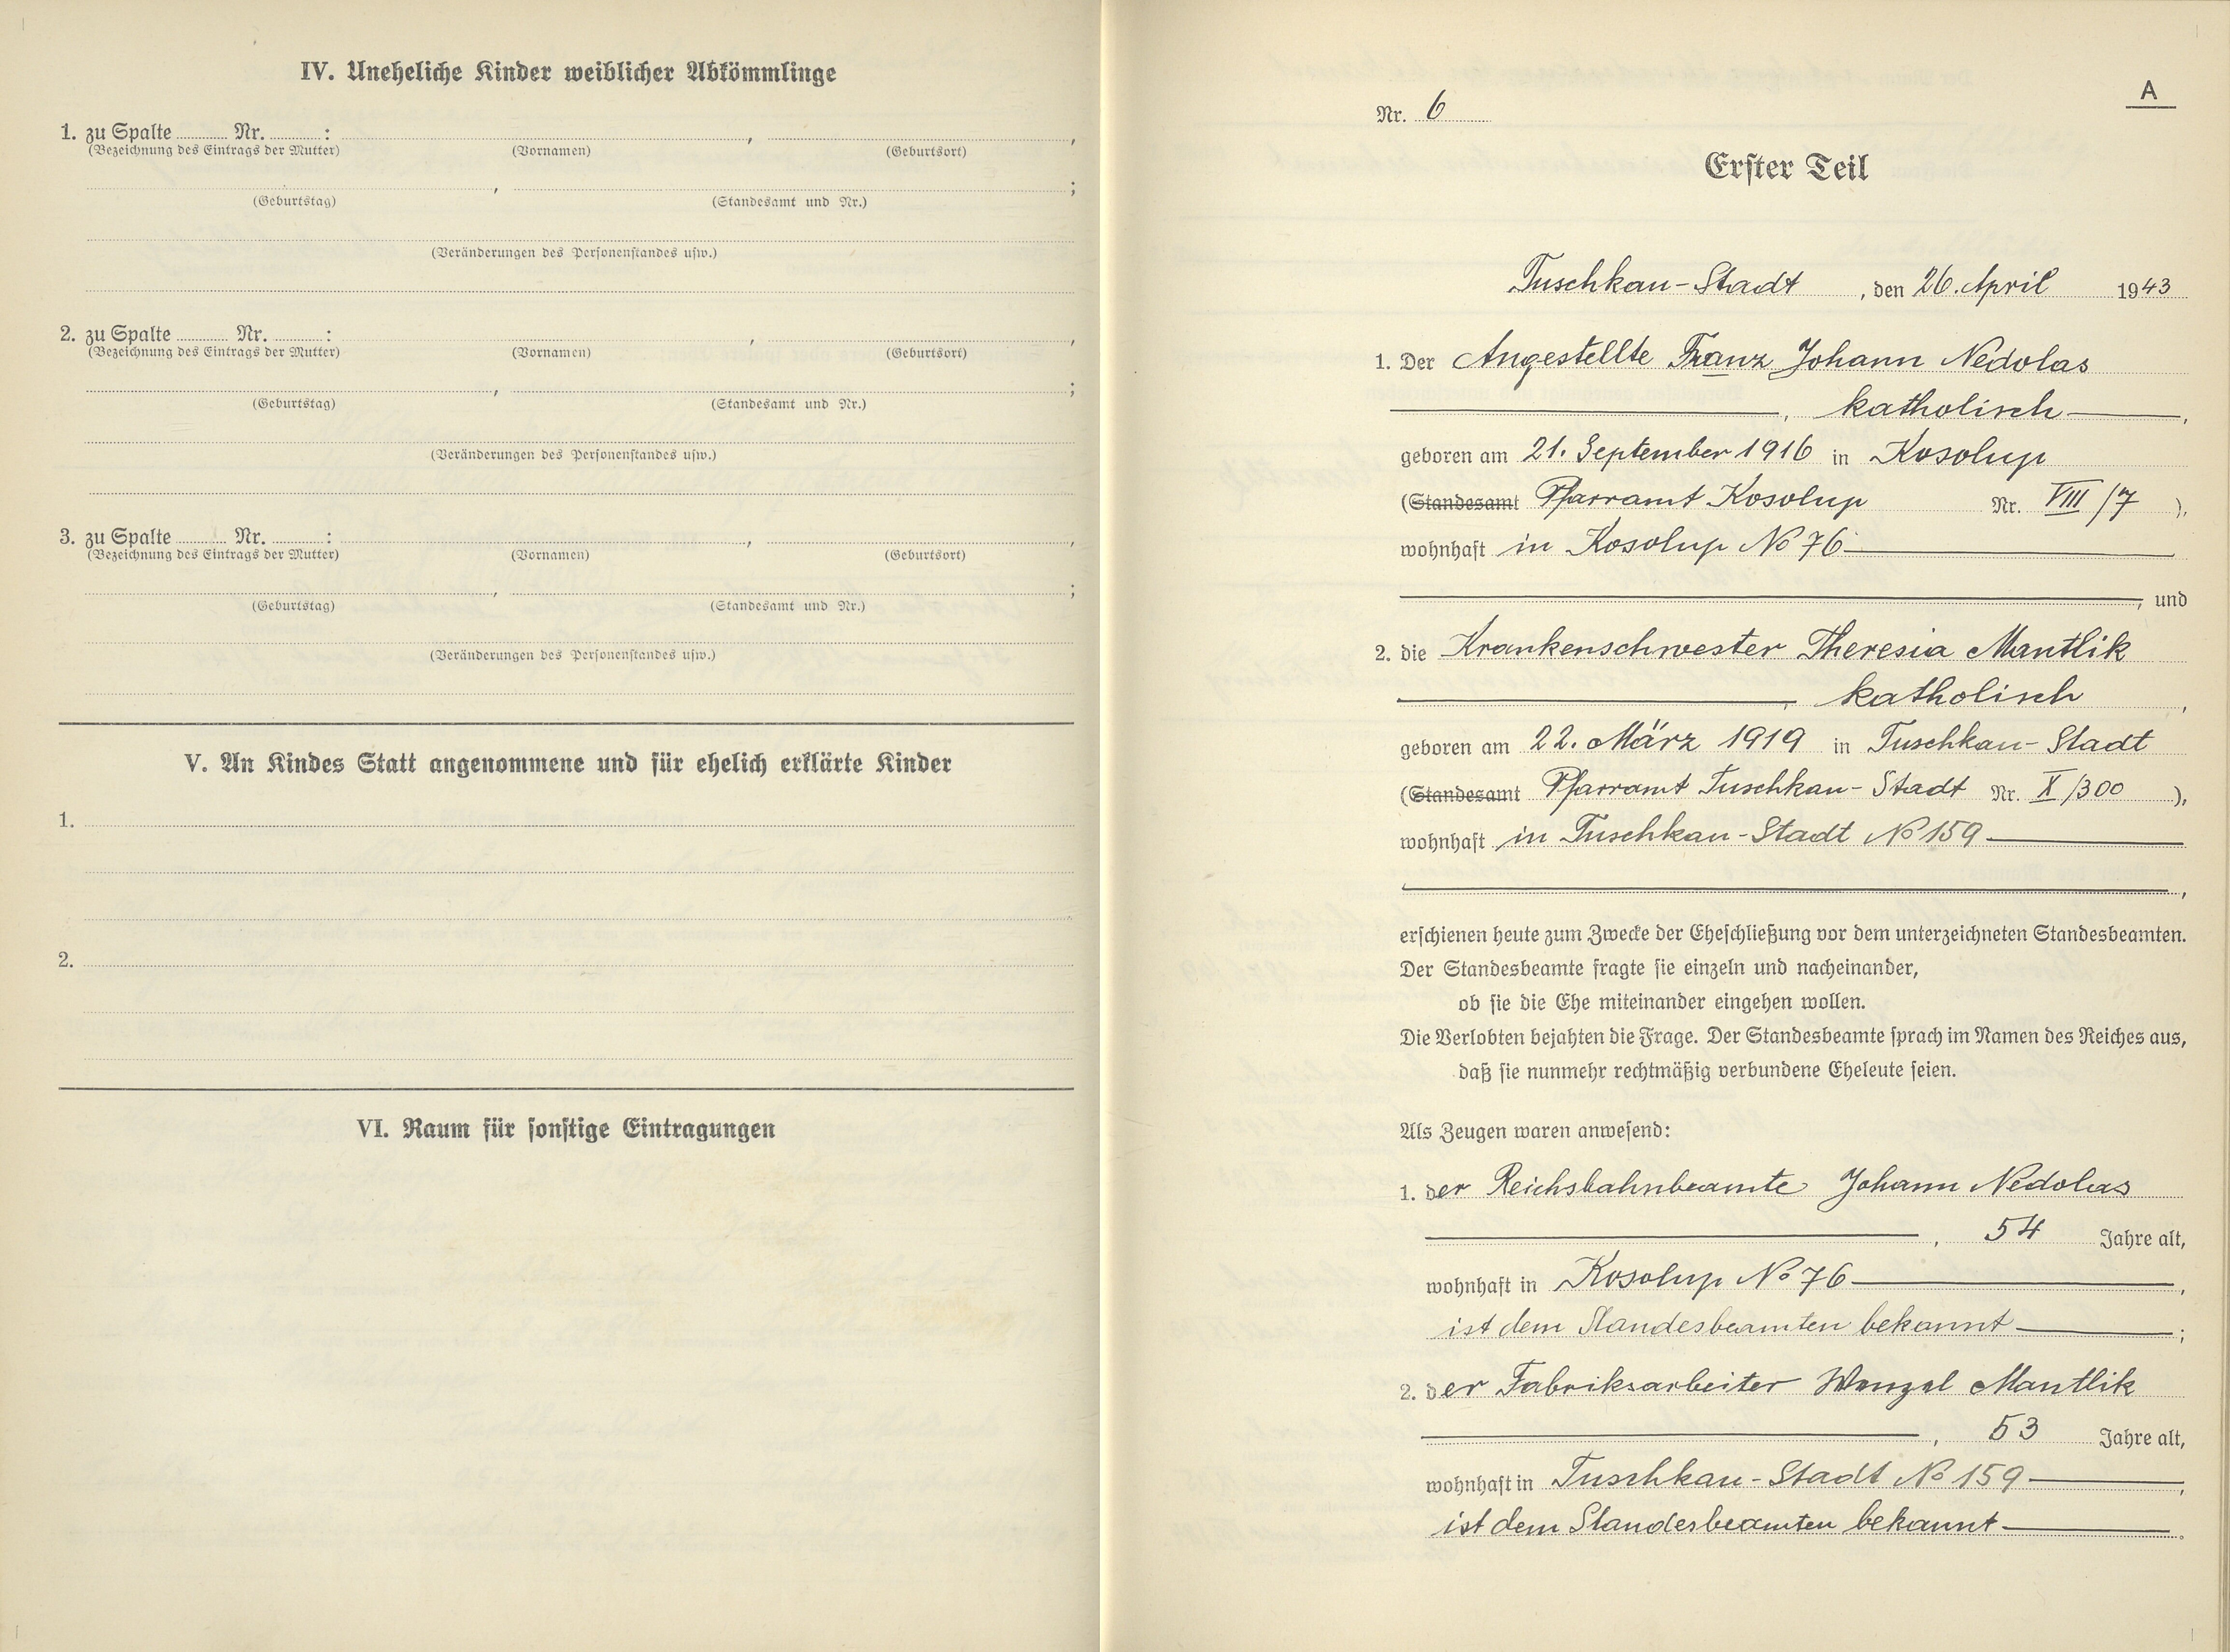 IV. Uneheliche Kinder weiblicher Abkömmlinge
1. zu Spalte ........ Nr. ........ : ........ , ........ ,
(Bezeichnung des Eintrags der Mutter) (Vornamen) (Geburtsort)
........ , ........ ;
(Geburtstag) (Standesamt und Nr.)
(Veränderungen des Personenstandes usw.)
2. zu Spalte ........ Nr. ........ : ........ , ........ ,
(Bezeichnung des Eintrags der Mutter) (Vornamen) (Geburtsort)
........ , ........ ;
(Geburtstag) (Standesamt und Nr.)
(Veränderungen des Personenstandes usw.)
3. zu Spalte ........ Nr. ........ : ........ , ........ ,
(Bezeichnung des Eintrags der Mutter) (Vornamen) (Geburtsort)
........ , ........ ;
(Geburtstag) (Standesamt und Nr.)
(Veränderungen des Personenstandes usw.)
V. An Kindes Statt angenommene und für ehelich erklärte Kinder
1.
2.
VI. Raum für sonstige Eintragungen
A
Nr. 6
Erster Teil
Tuschkau-Stadt , den 26. April 1943
1. Der Angestellte Franz Johann Nedolas
, katholisch ,
geboren am 21. September 1916 in Kosolup
(Standesamt Pfarramt Kosolup Nr. VIII/7 ),
wohnhaft in Kosolup No 76
, und
2. die Krankenschwester Theresia Mantlik
, katholisch ,
geboren am 22. März 1919 in Tuschkau-Stadt
(Standesamt Pfarramt Tuschkau-Stadt Nr. X/300 ),
wohnhaft in Tuschkau-Stadt No 159
,
erschienen heute zum Zwecke der Eheschließung vor dem unterzeichneten Standesbeamten.
Der Standesbeamte fragte sie einzeln und nacheinander,
ob sie die Ehe miteinander eingehen wollen.
Die Verlobten bejahten die Frage. Der Standesbeamte sprach im Namen des Reiches aus,
daß sie nunmehr rechtmäßig verbundene Eheleute seien.
Als Zeugen waren anwesend:
1. der Reichsbahnbeamte Johann Nedolas
, 54 Jahre alt,
wohnhaft in Kosolup No 76 ,
ist dem Standesbeamten bekannt ;
2. der Fabriksarbeiter Wenzel Mantlik
, 53 Jahre alt,
wohnhaft in Tuschkau-Stadt No 159 ,
ist dem Standesbeamten bekannt .